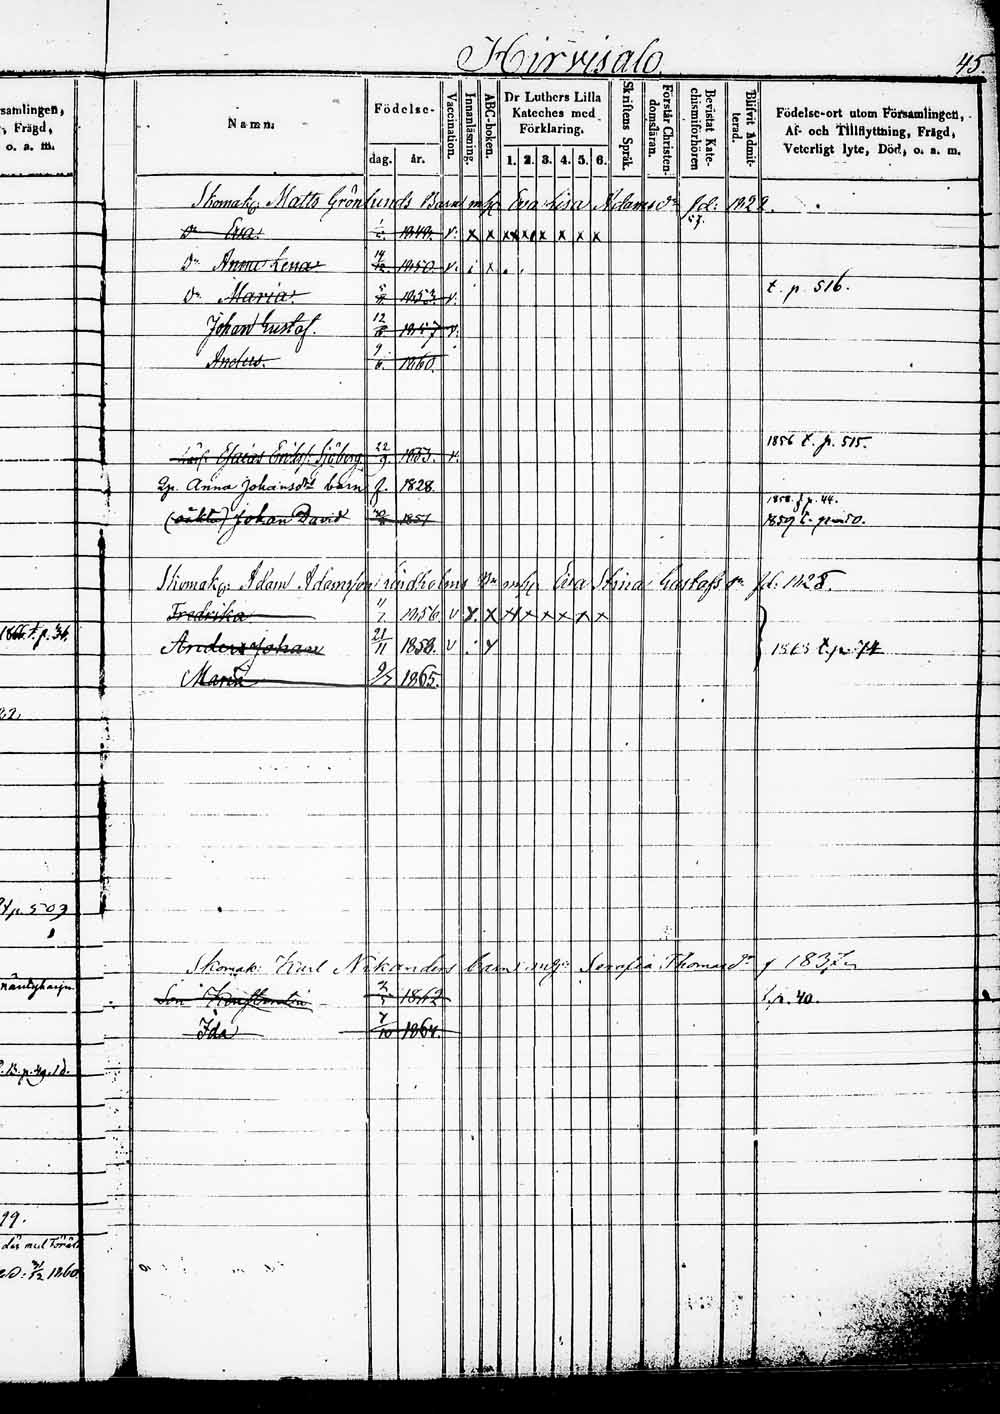 Hirvisalo.
45.
samlingen,
, Frägd,
o. a. m.
Namn.
Födelse-
dag. år.
Vaccination.
Innanläsning.
ABC-boken.
Dr Luthers Lilla
Kateches med
Förklaring.
1. 2. 3. 4. 5. 6.
Skriftens Språk.
Förstår Christen-
domsläran.
Bevistat Kate-
chismiförhören
Blifvit Admit-
terad.
Födelse-ort utom Församlingen,
Af- och Tillflyttning, Frägd,
Veterligt lyte, Död, o. a. m.
Skomak: Matts Grönlunds Barn m/h Eva Lisa Adamsdr fd: 1822.
Dr Eva 1849. v. x x x x x x x x
Dr Anna Lena 1850. v.
Dr Maria 5 1853. v. t. p. 516.
Johan Gustaf. 12 1857 v.
Anders. 9/6. 1860.
1856 t. p. 515.
Esaias Eriks: Sjöberg 22/9 1853. v.
Qp. Anna Johansdr barn f. 1828.
1858. f p. 44.
(oäkta) Johan David 1851 1859 t. p. 50.
Skomak: Adam Adamsson Lindholms Bn m/h Eva Stina Gustafsdr fd. 1828.
Fredrika 1856 v x x x x x x x x
1866 t. p. 36.
Anders Johan 21/11 1858. v 1868 t. p. 74
Maria 9/7 1865.
22.
t p. 503
Skomak: Karl Nikanders barn m/h Serafia Thomasdr f 1837
Son Konstantin 1862 t. p. 40.
Ida 7/10 1864.
B. p. 49.
99.
1860